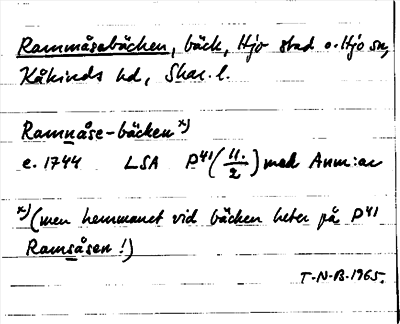 Rammåsabäcken, bäck, Hjo stad o. Hjo sn,
Kåkinds hd, Skar. l.
Ramnåse-bäcken x)
e. 1744 LSA P41 (11./2) med Anm:ar
x) (men hemmanet vid bäcken heter på P41
Ramsåsen!)
T-N-B-1965.